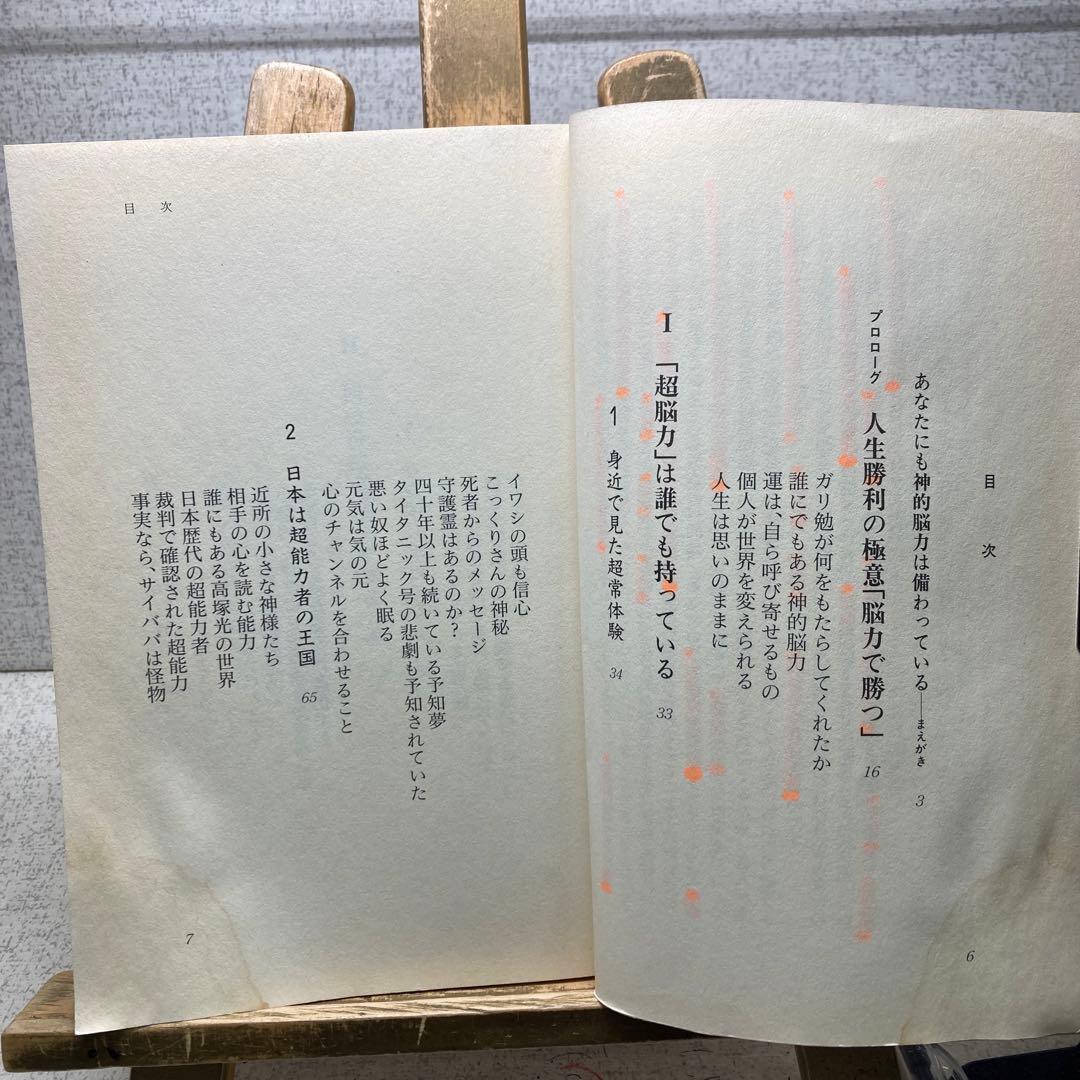 目次
あなたにも神的脳力は備わっている――まえがき 3
プロローグ 人生勝利の極意「脳力で勝つ」 16
ガリ勉が何をもたらしてくれたか
誰にでもある神的脳力
運は、自ら呼び寄せるもの
個人が世界を変えられる
人生は思いのままに
I 「超脳力」は誰でも持っている 33
1 身近で見た超常体験 34
6
目次
イワシの頭も信心
こっくりさんの神秘
死者からのメッセージ
守護霊はあるのか?
四十年以上も続いている予知夢
タイタニック号の悲劇も予知されていた
悪い奴ほどよく眠る
元気は気の元
心のチャンネルを合わせること
2 日本は超能力者の王国 65
近所の小さな神様たち
相手の心を読む能力
誰にもある高塚光の世界
日本歴代の超能力者
裁判で確認された超能力
事実なら、サイババは怪物
7